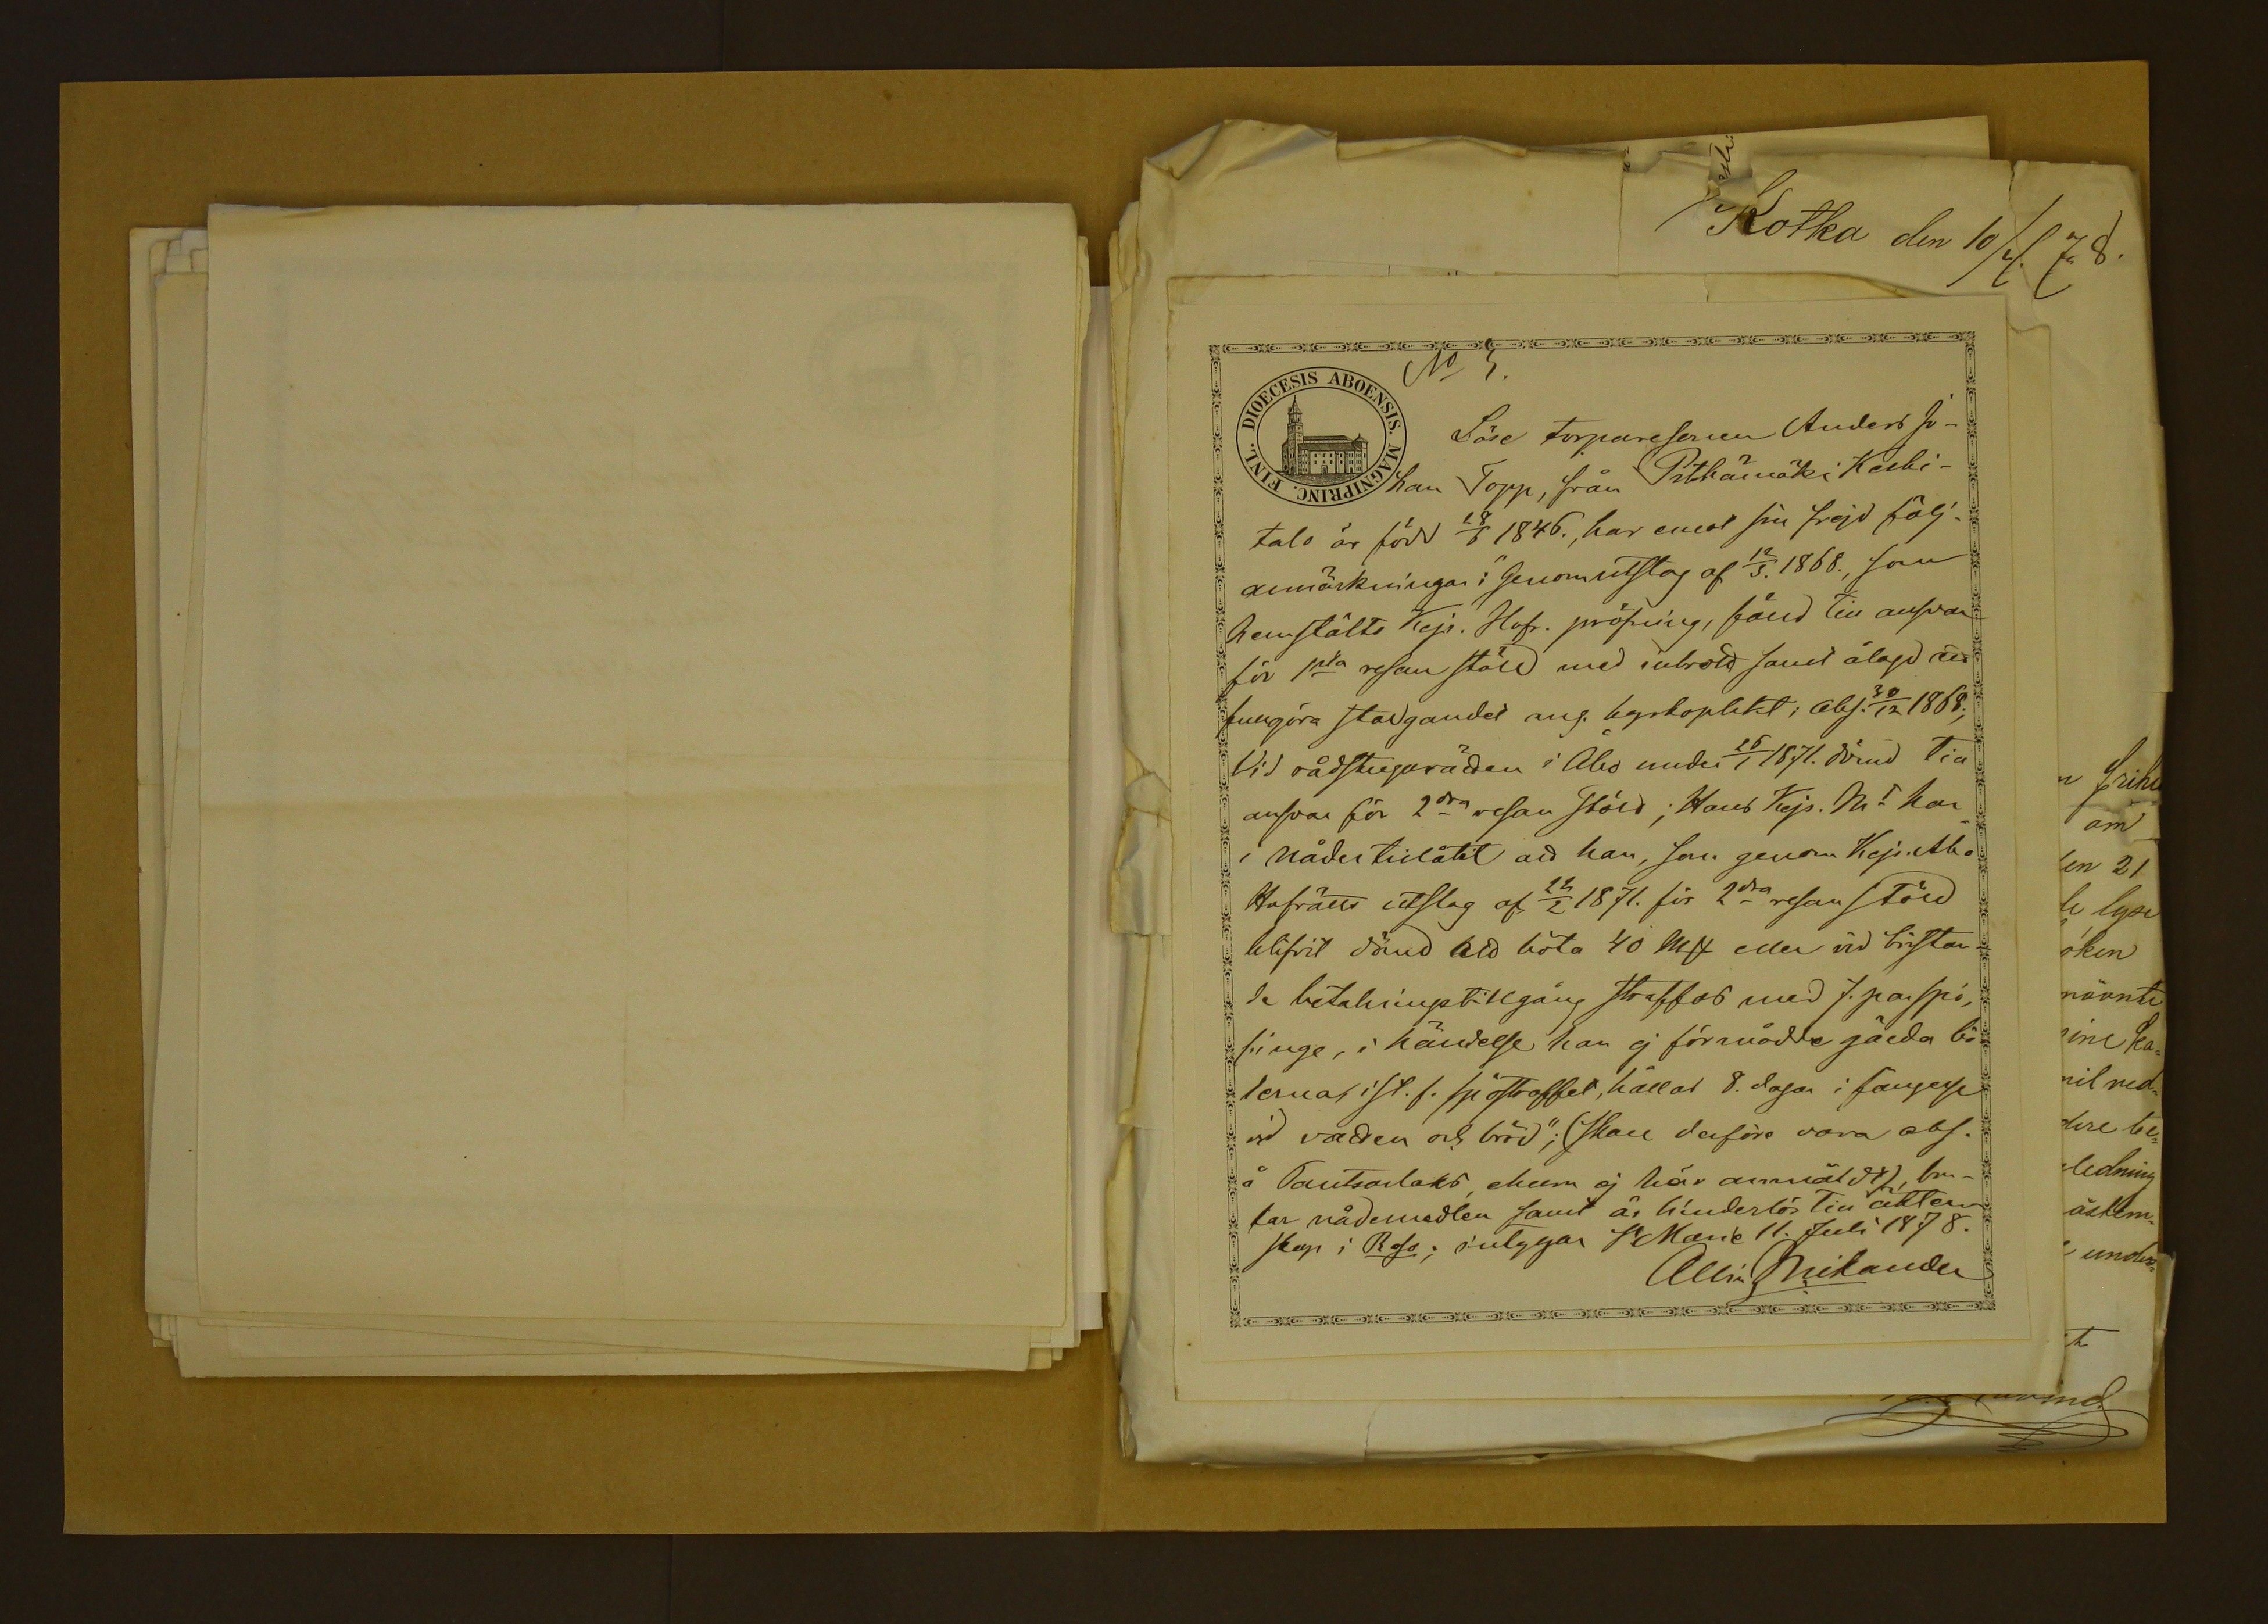 Kotka den 10/4 78.
No 5.
DIOECESIS ABOENSIS. MAGNIPRINC. FINL.
Löse torparesonen Anders Jo-
han Topp, från Pitkämäki Keski-
talo är född 28/8 1846., har emot sin frejd följ.
anmärkningar: "Genom utslag af 12/5. 1868., som
hemstälts Kejs. Hofr. pröfning, fäld till ansvar
för 1sta resan stöld med inbrott samt ålagd att
fungöra stadgandet ang. kyrkoplikt; abs. 30/12 1868.;
Vid rådstugurätten i Åbo under 16/1 1871. dömd till
ansvar för 2dra resan stöld; Hans Kejs. Mt har
i nåder tillåtit att han, som genom Kejs. Åbo
Hofrätts utslag af 22/2 1871. för 2dra resan stöld
blifvit dömd att böta 40 Mk eller vid bristan-
de betalningstillgång straffas med 7. par spö,
finge, i händelse han ej förmådde gälda bö-
terna, i st. f. spöstraffet, hållas 8. dagar i fängelse
vid vatten och bröd"; (skall derföre vara abs.
å Tantsarlaks, ehuru ej här anmäldt), bru-
kar nådemedlen samt är hinderlös till äkten-
skap i Rese; intygar St Marie 11. Juli 1878.
Mikander
n
am
en 21
lyse
öken
nämnte
ledning
under-